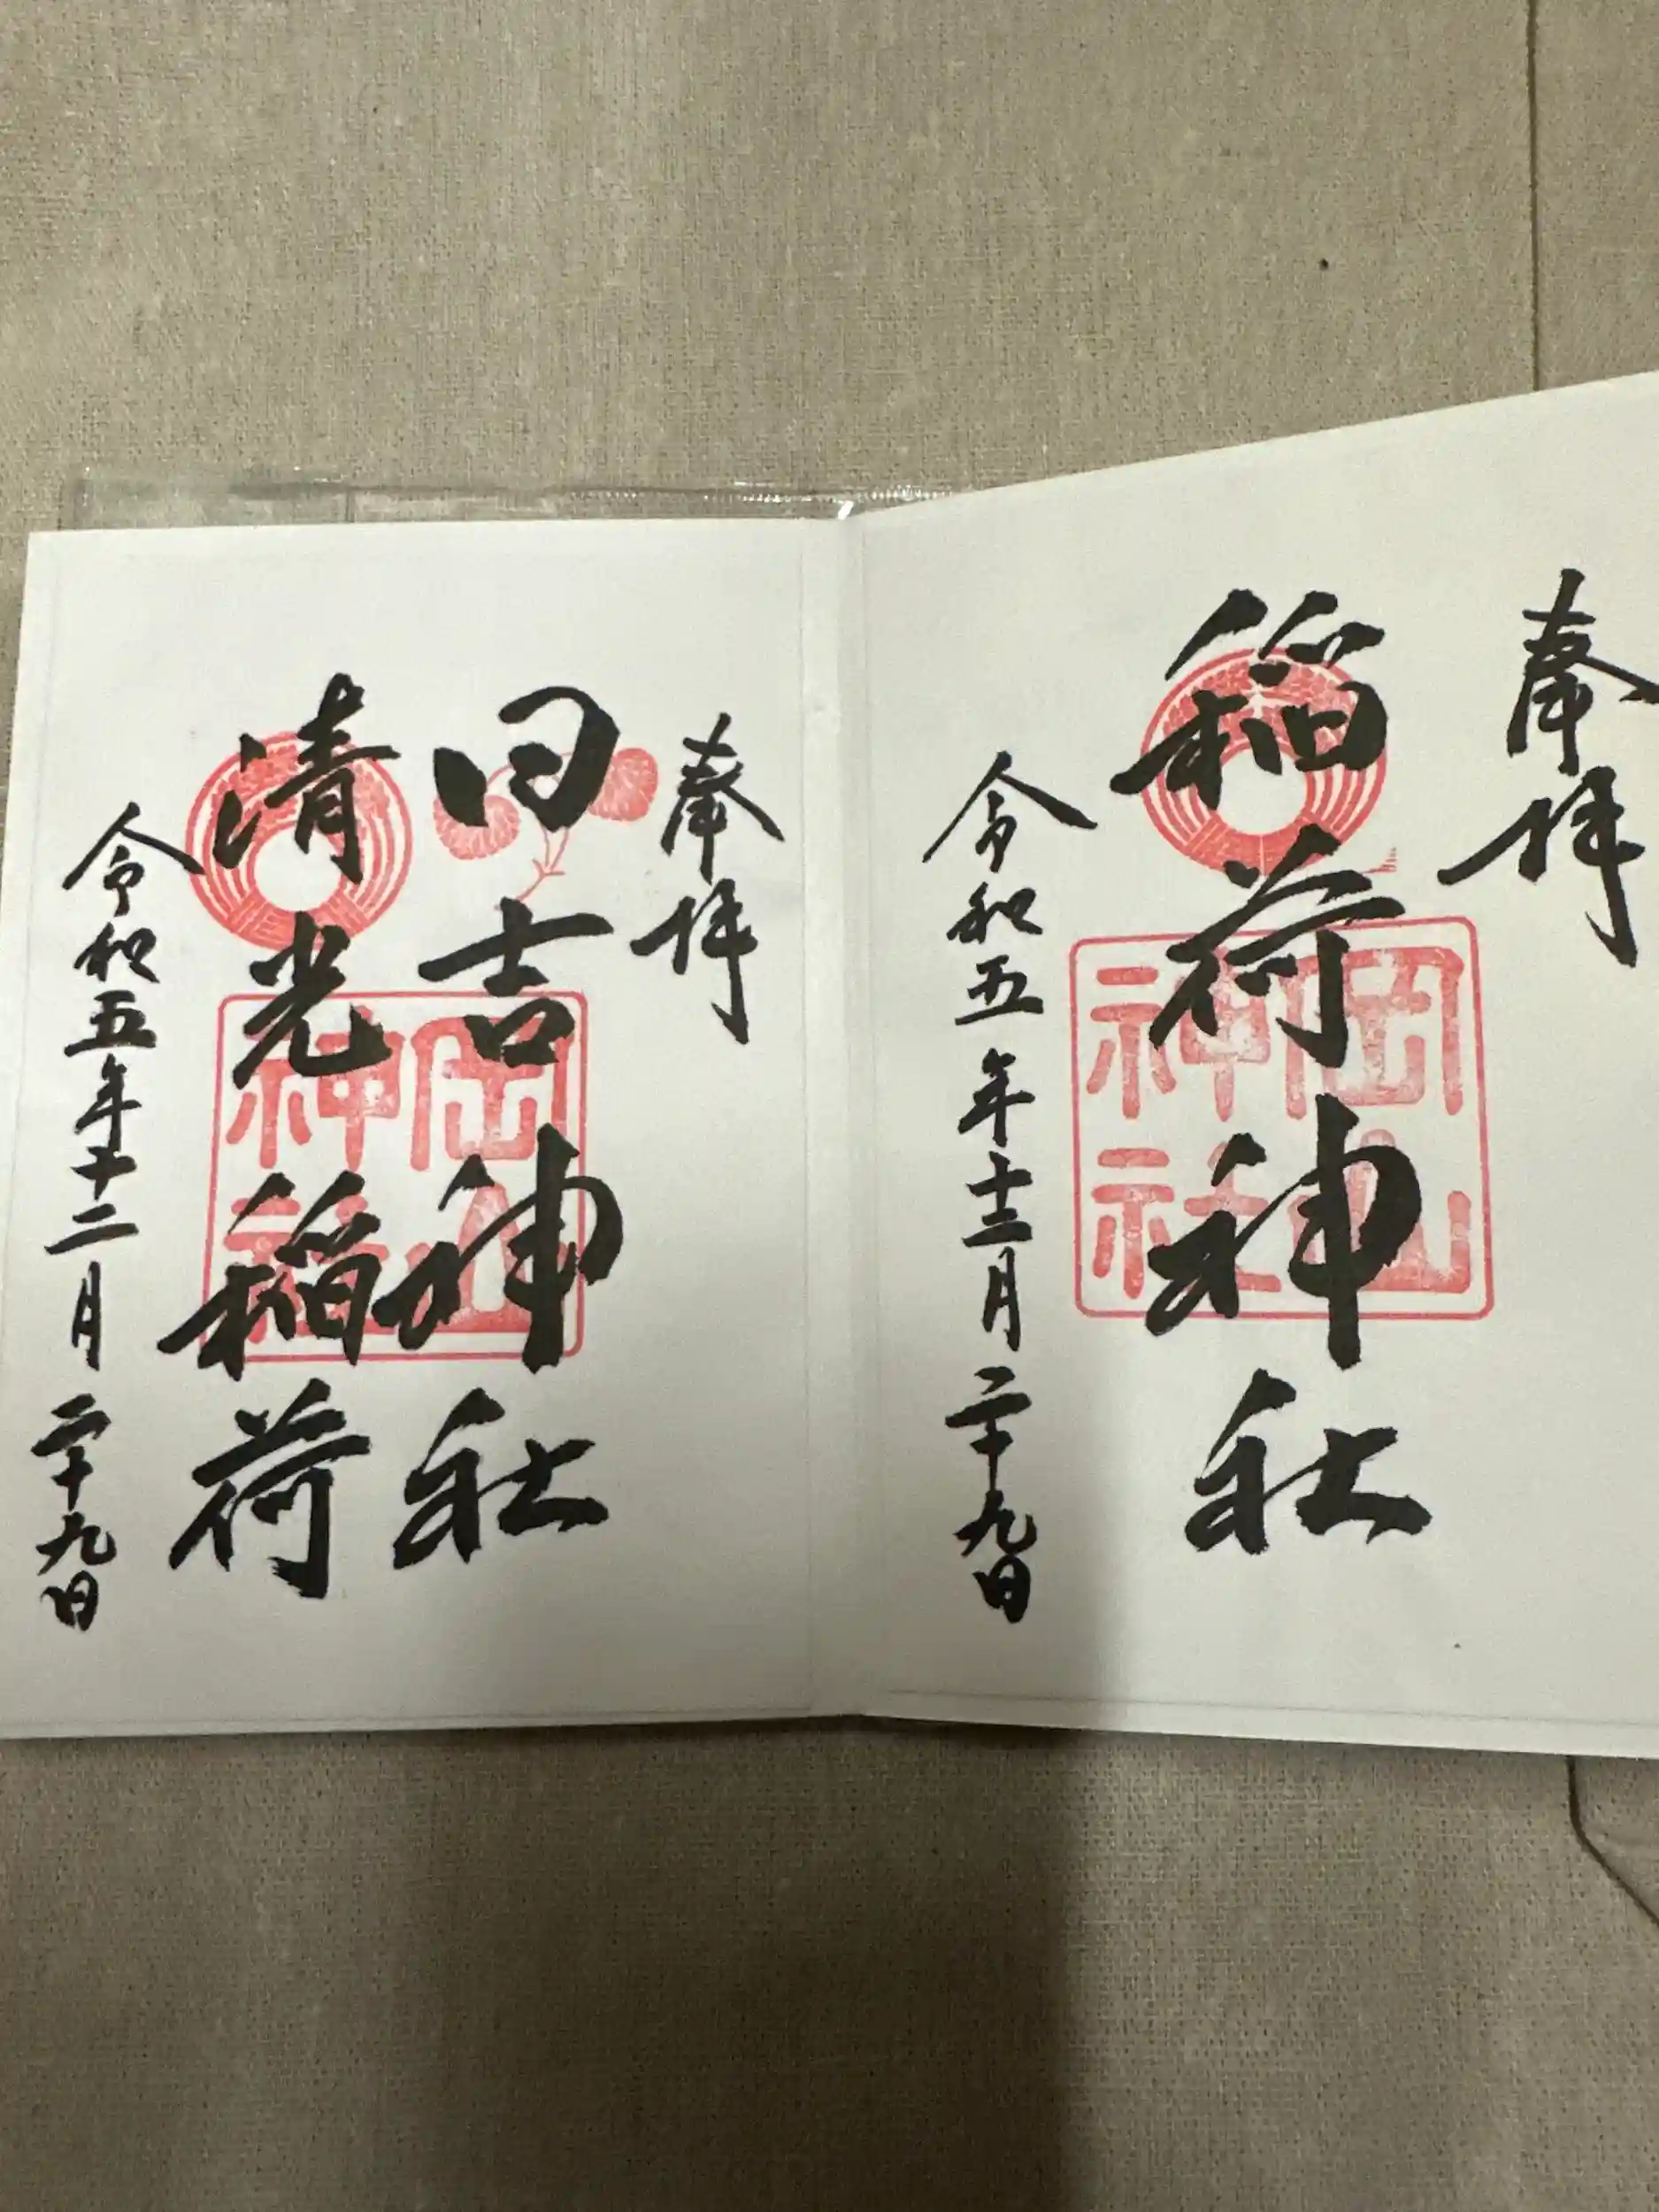 奉拝
稲荷神社
岡山
神社
令和五年十二月二十九日
奉拝
日吉神社
清光稲荷
岡山
神社
令和五年十二月二十九日